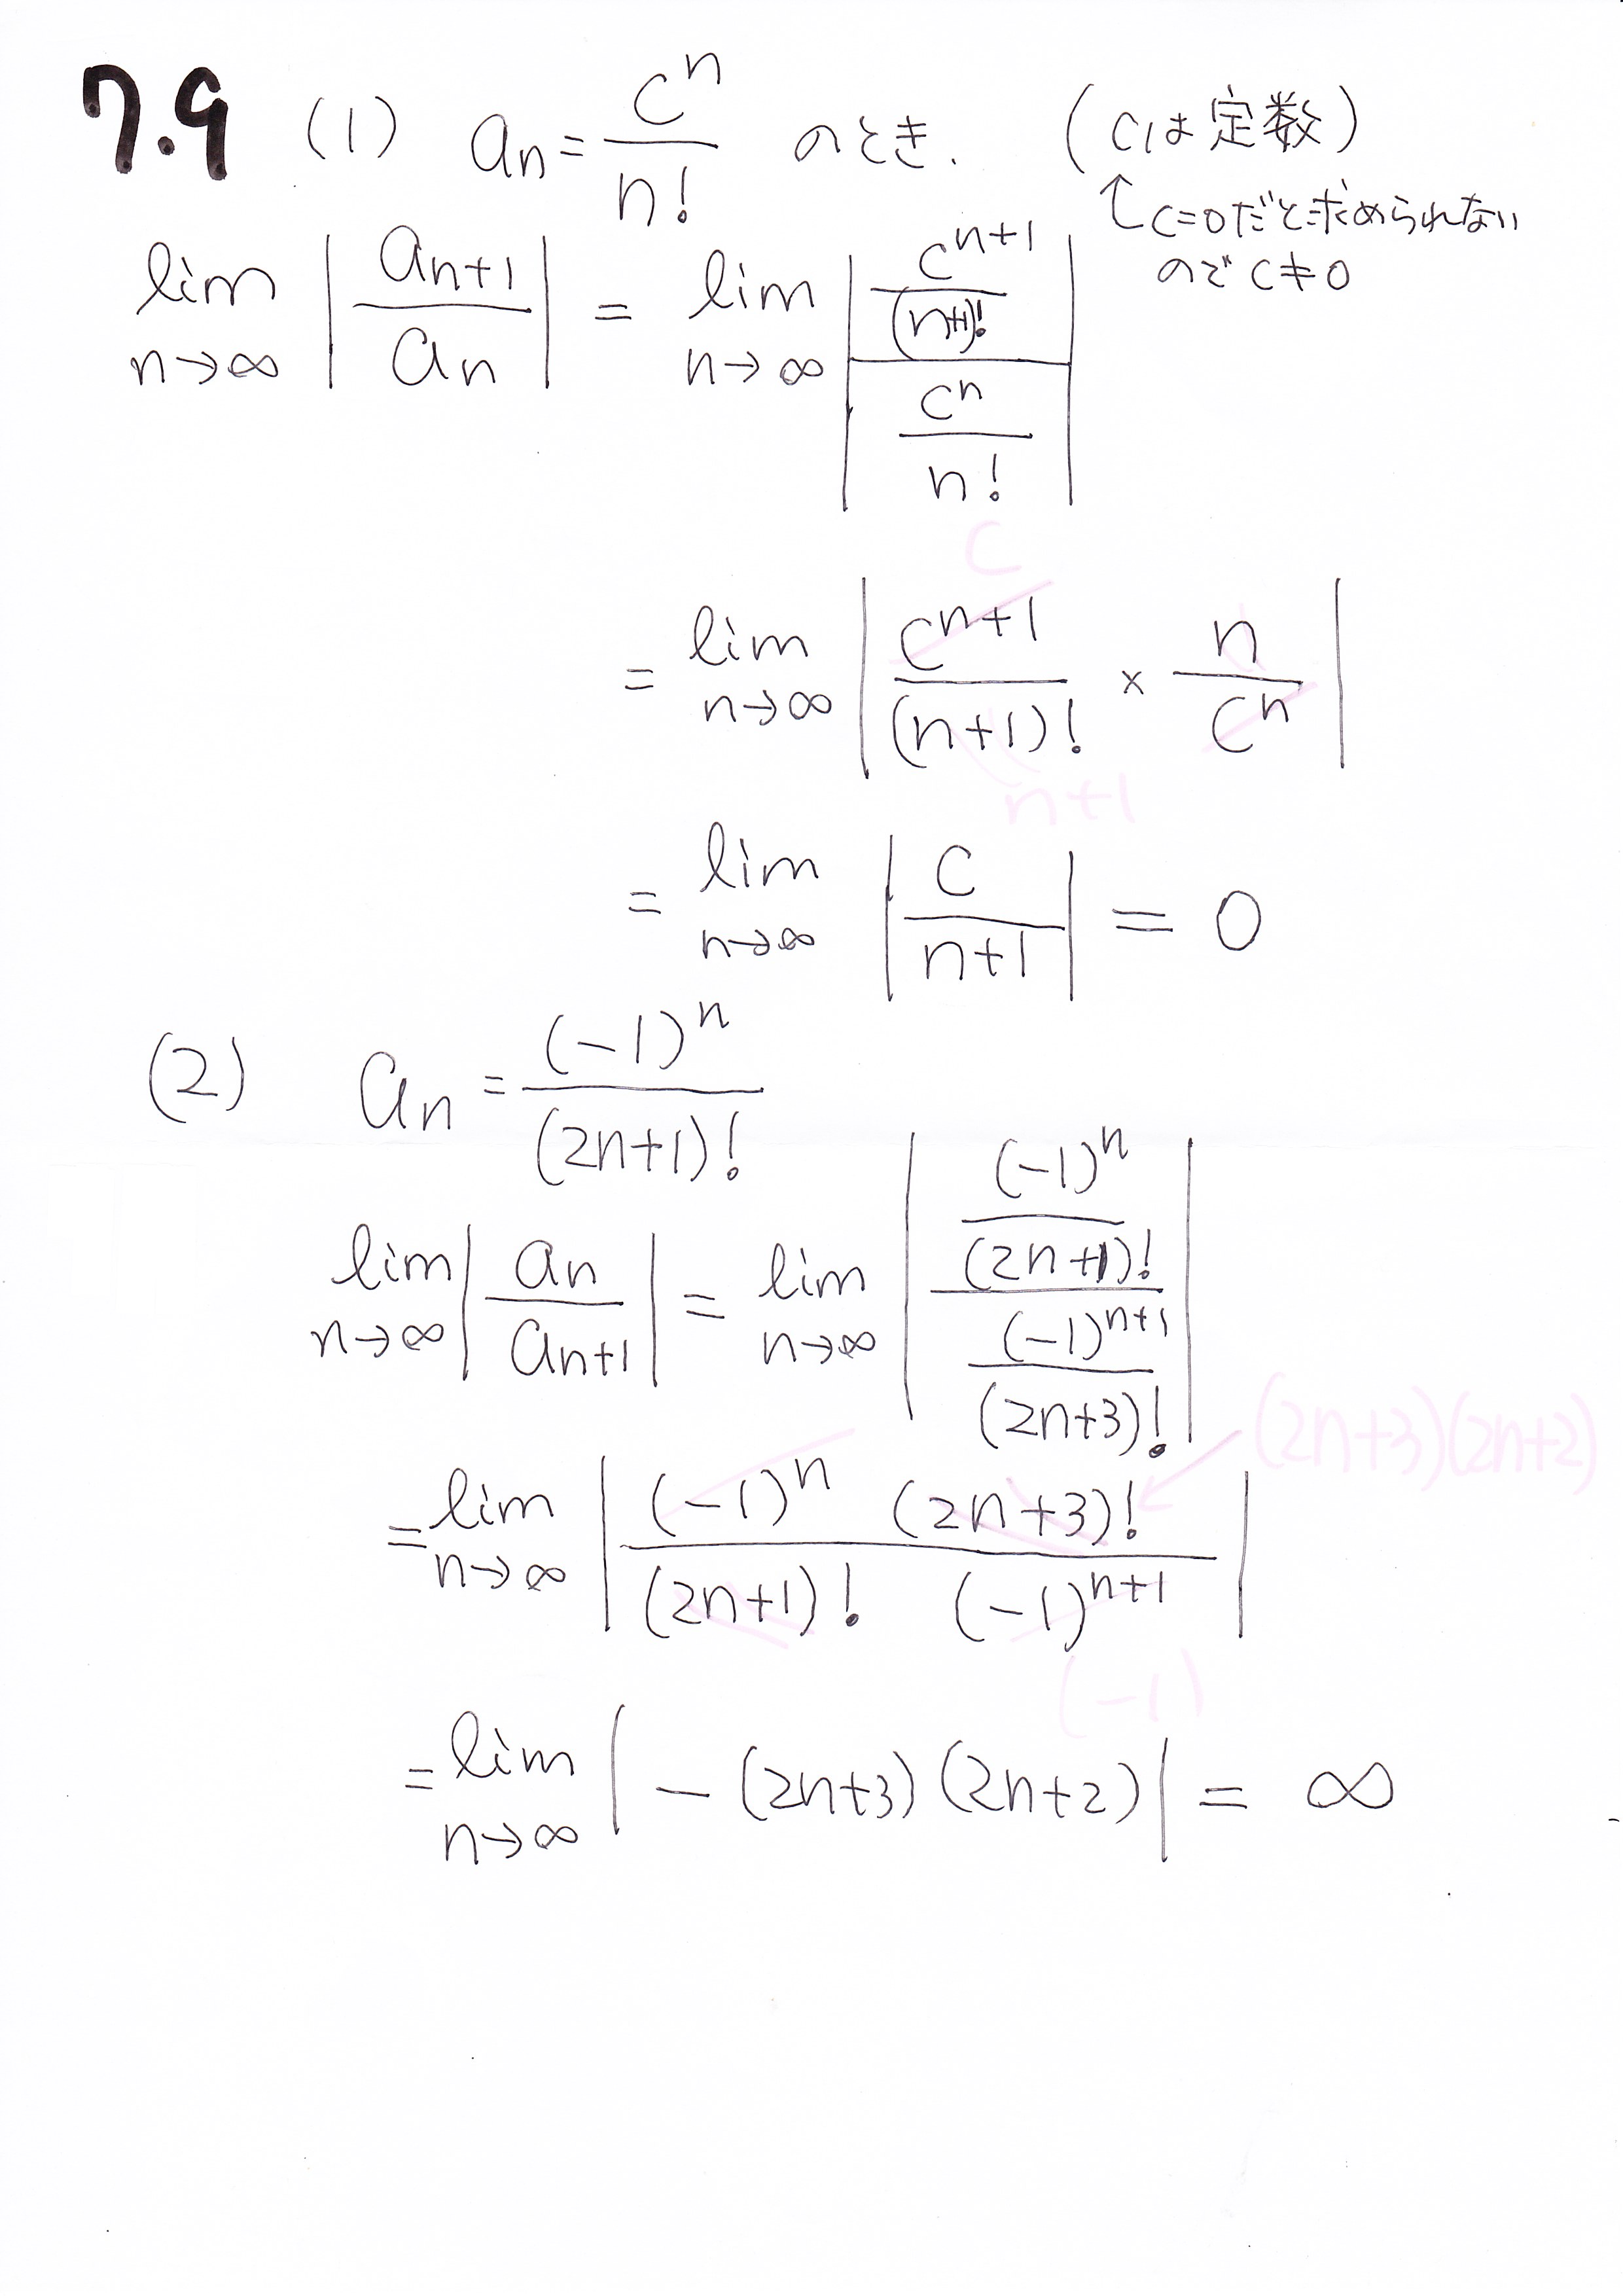 7.9 (1) an = c^n / n! のとき. (cは定数)
↑c=0だと求められない
のでc≠0
lim n→∞ | an+1 / an | = lim n→∞ | (c^(n+1) / (n+1)!) / (c^n / n!) |
c
= lim n→∞ | c^(n+1) / (n+1)! × n / c^n |
n+1
= lim n→∞ | c / n+1 | = 0
(2) an = (-1)^n / (2n+1)!
lim n→∞ | an / an+1 | = lim n→∞ | ((-1)^n / (2n+1)!) / ((-1)^(n+1) / (2n+3)!) |
(2n+3)(2n+2)
= lim n→∞ | (-1)^n (2n+3)! / (2n+1)! (-1)^(n+1) |
(-1)
= lim n→∞ | - (2n+3)(2n+2) | = ∞